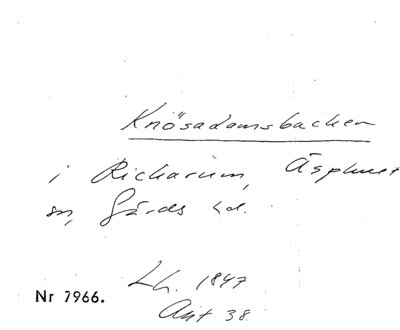 Knösadamsbacken
i Rickarum, Äsphult
sn, Gärds hd.
Lh. 1847
Akt 38.
Nr 7966.